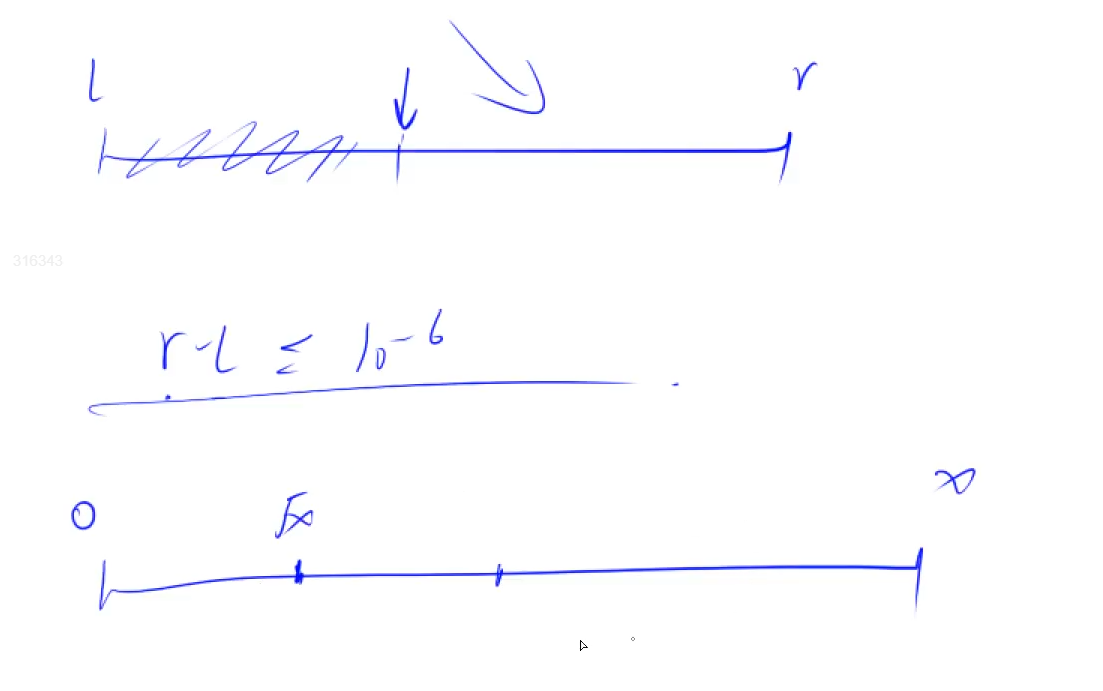 l r
316343
r-l ≤ 10-6
0 √x x